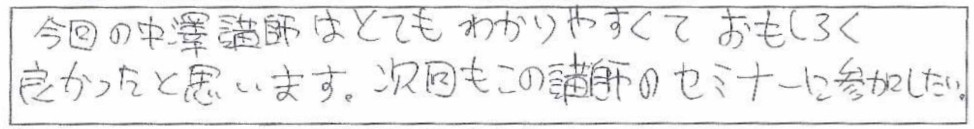 今回の中澤講師はとてもわかりやすくて おもしろく
良かったと思います。次回もこの講師のセミナーに参加したい。